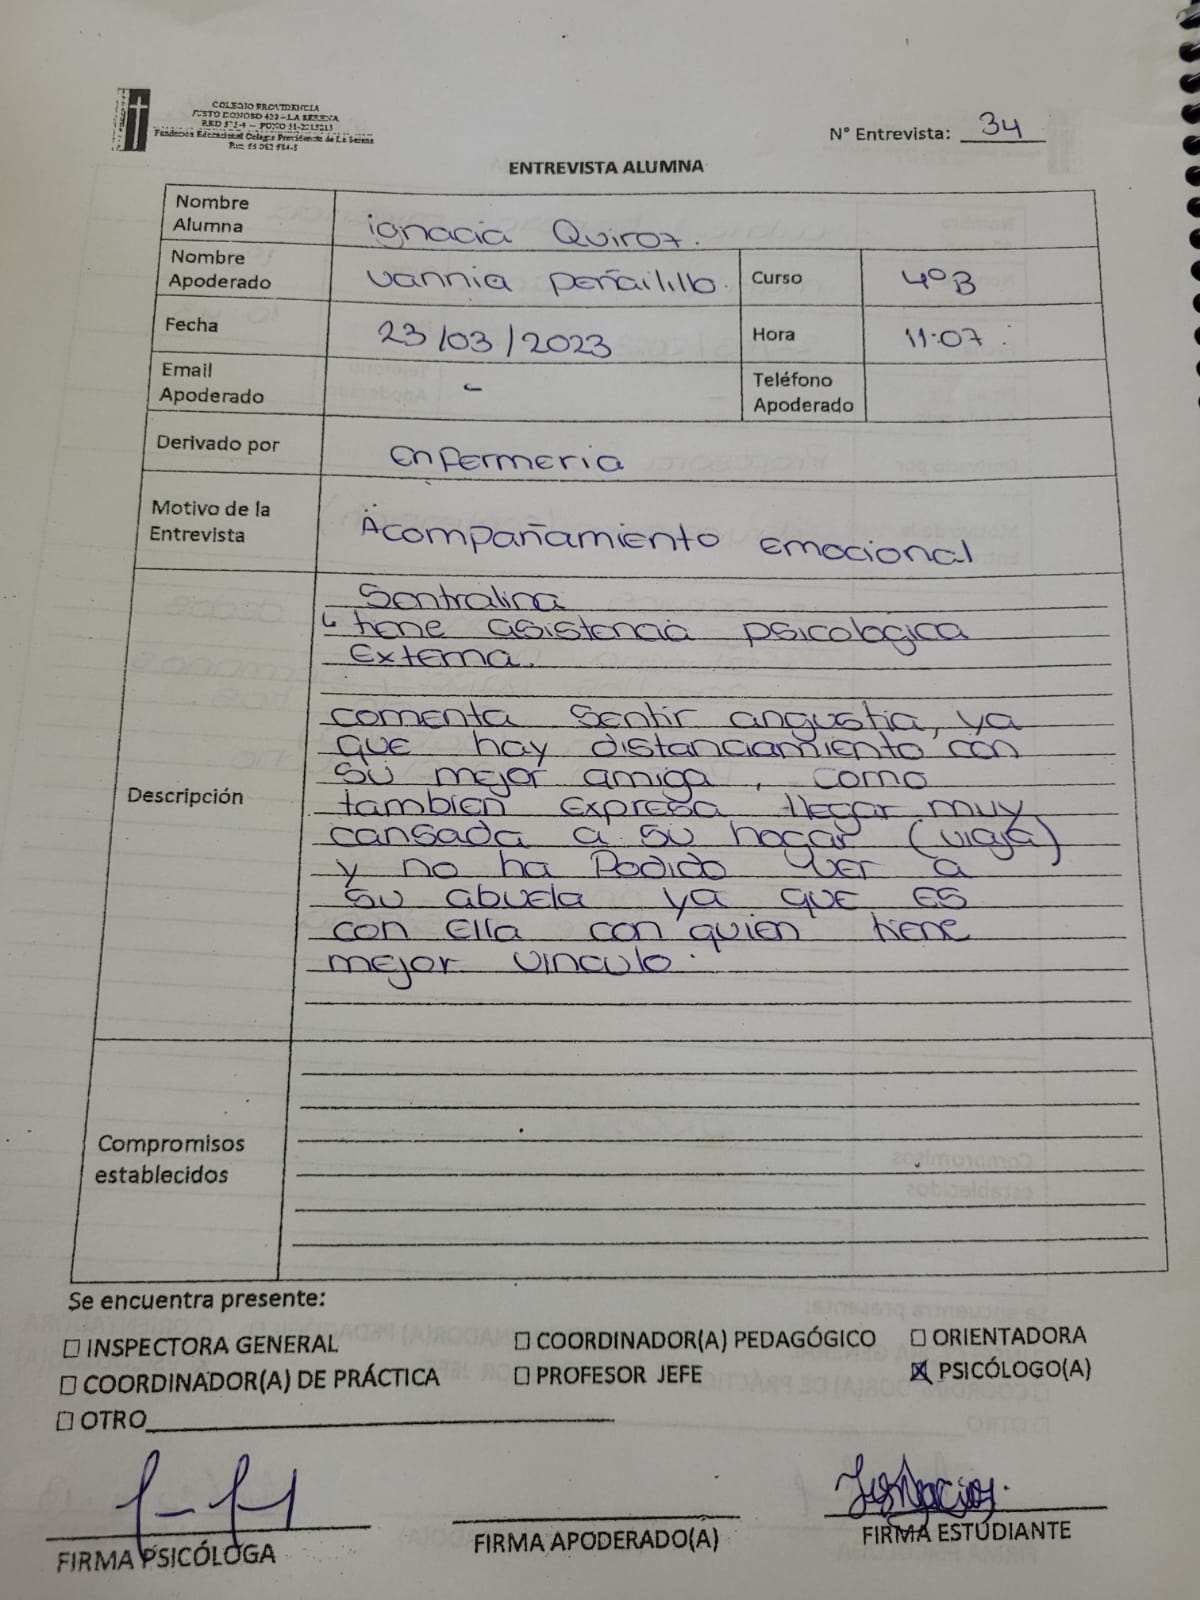 COLEGIO PROVIDENCIA
JUSTO DONOSO 420 - LA SERENA
Fundación Educacional Colegio Providencia de La Serena
N° Entrevista: 34
ENTREVISTA ALUMNA
Nombre Alumna ignacia Quiroz.
Nombre Apoderado vannia peñailillo. Curso 4ºB
Fecha 23/03/2023 Hora 11:07.
Email Apoderado - Teléfono Apoderado
Derivado por Enfermeria
Motivo de la Entrevista Acompañamiento emocional
Descripción
Sentralina
↳ tiene asistencia psicologica
Externa.
comenta sentir angustia, ya
que hay distanciamiento con
su mejor amiga, como
tambien expresa llegar muy
cansada a su hogar (viaja)
y no ha Podido ver a
su abuela ya que es
con Ella con quien tiene
mejor vinculo.
Compromisos establecidos
Se encuentra presente:
☐ INSPECTORA GENERAL ☐ COORDINADOR(A) PEDAGÓGICO ☐ ORIENTADORA
☐ COORDINADOR(A) DE PRÁCTICA ☐ PROFESOR JEFE ☒ PSICÓLOGO(A)
☐ OTRO
FIRMA PSICÓLOGA FIRMA APODERADO(A) FIRMA ESTUDIANTE